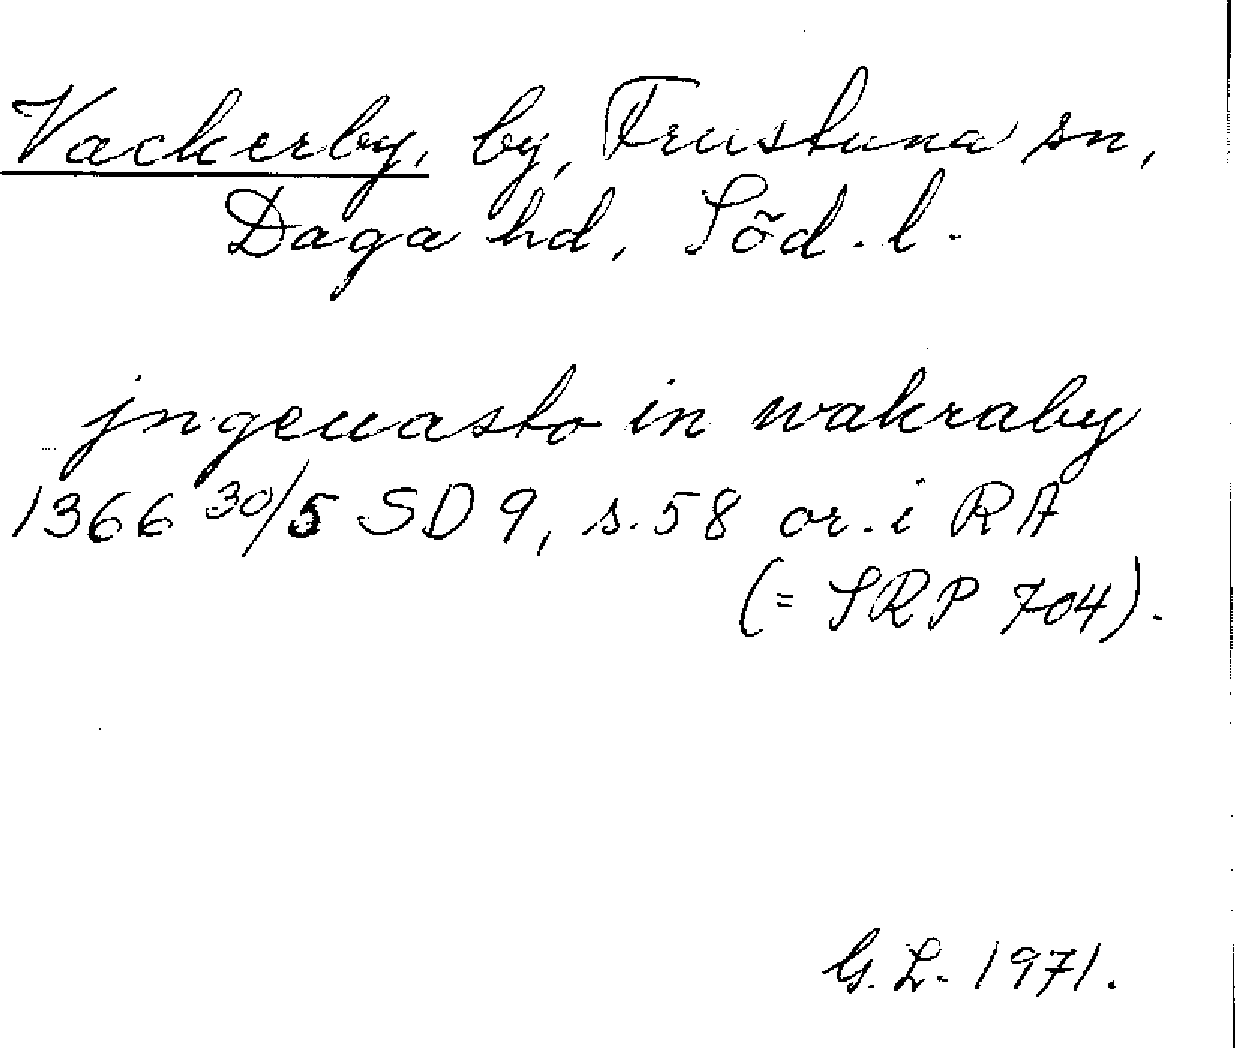 Vackerby, by, Frustuna sn,
Daga hd, Söd. l.
jngeuasto in wakraby
1366 30/5 SD 9, s. 58 or. i RA
(= SRP 704).
G. L. 1971.